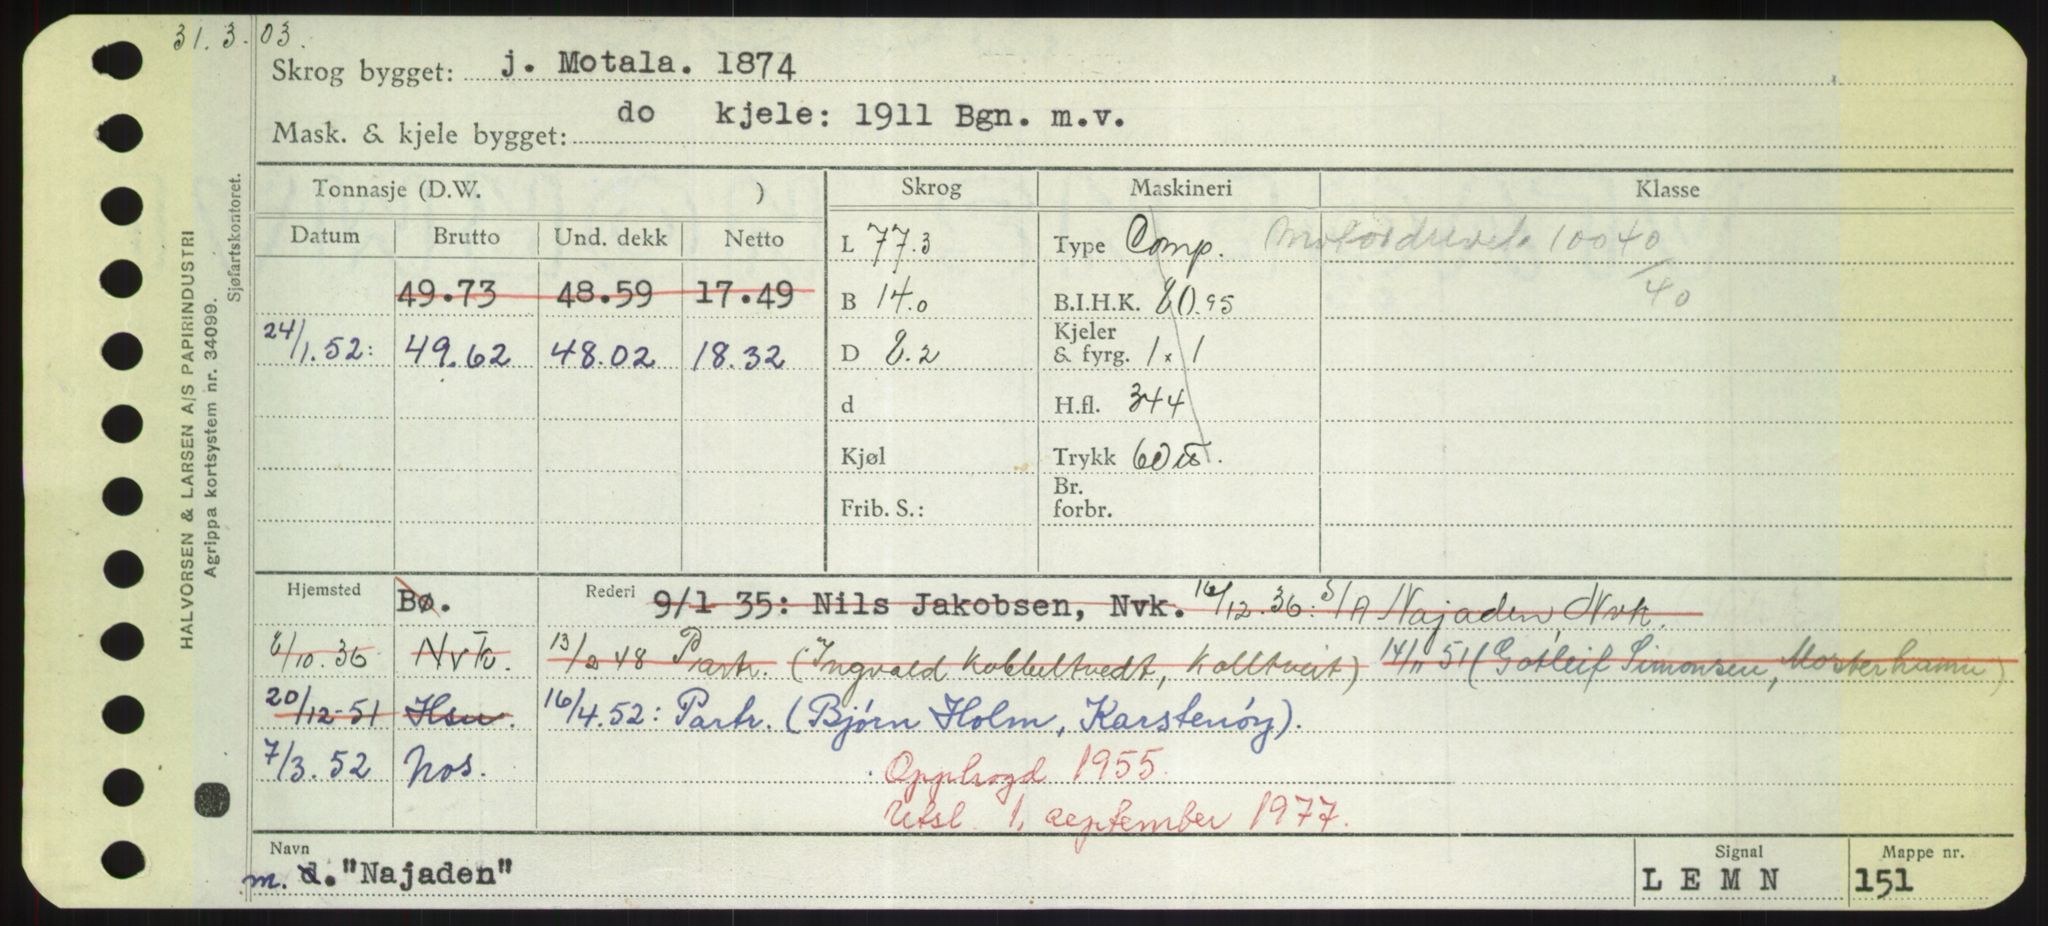 31.3.03.
Skrog bygget: j. Motala. 1874
Mask. & kjele bygget: do kjele: 1911 Bgn. m.v.
HALVORSEN & LARSEN A/S PAPIRINDUSTRI
Agrippa kortsystem nr. 34099.
Sjøfartskontoret.
Tonnasje (D.W. ) Skrog Maskineri Klasse
Datum Brutto Und. dekk Netto
L 77.3 Type Comp. 10040
49.73 48.59 17.49 B 14.0 B.I.H.K. 80.95 /40
24/1.52: 49.62 48.02 18.32 D 8.2 Kjeler & fyrg. 1 x 1
d H.fl. 344
Kjøl Trykk 60
Frib. S.: Br. forbr.
Hjemsted Bø. Rederi 9/1 35: Nils Jakobsen, Nvk. 16/12.36: S/A Najaden, Nvk.
8/10.36 Nvk. 13/2 48 Partr. (Ingvald Kobbeltvedt, Kolltveit) 14/11 51 (Gotleif Simonsen, Mosterhamn)
20/12-51 Hsn. 16/4.52: Partr. (Bjørn Holm, Karstenøy).
7/3.52 Nos. Opphogd 1955.
Utsl. 1. september 1977.
Navn Signal Mappe nr.
m. d. "Najaden" LEMN 151